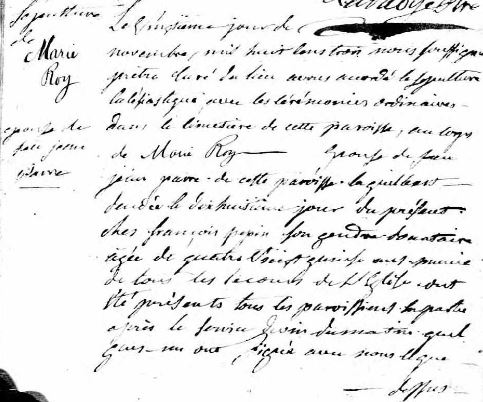 Sepulture
de
Marie
Roy
epouse de
feu jean
pavre
Le vingtième jour de
novembre, mil huit cens trois nous soussigné
pretre curé du lieu avons accordé le sepulture
eclesiastique avec les cérémonies ordinaires
dans le cimetière de cette paroisse, au corps
de Marie Roy Epouse de feu
jean pavre de cette paroisse laquelle est
decedée le dixhuitième jour du présent
chez françois pepin son gendre donataire
agée de quatre vingt quinze ans munie
de tous les secours de L'Eglise ont
été présents tous les paroissiens
après le quel
ques-uns ont signés avec nous le que
dessus